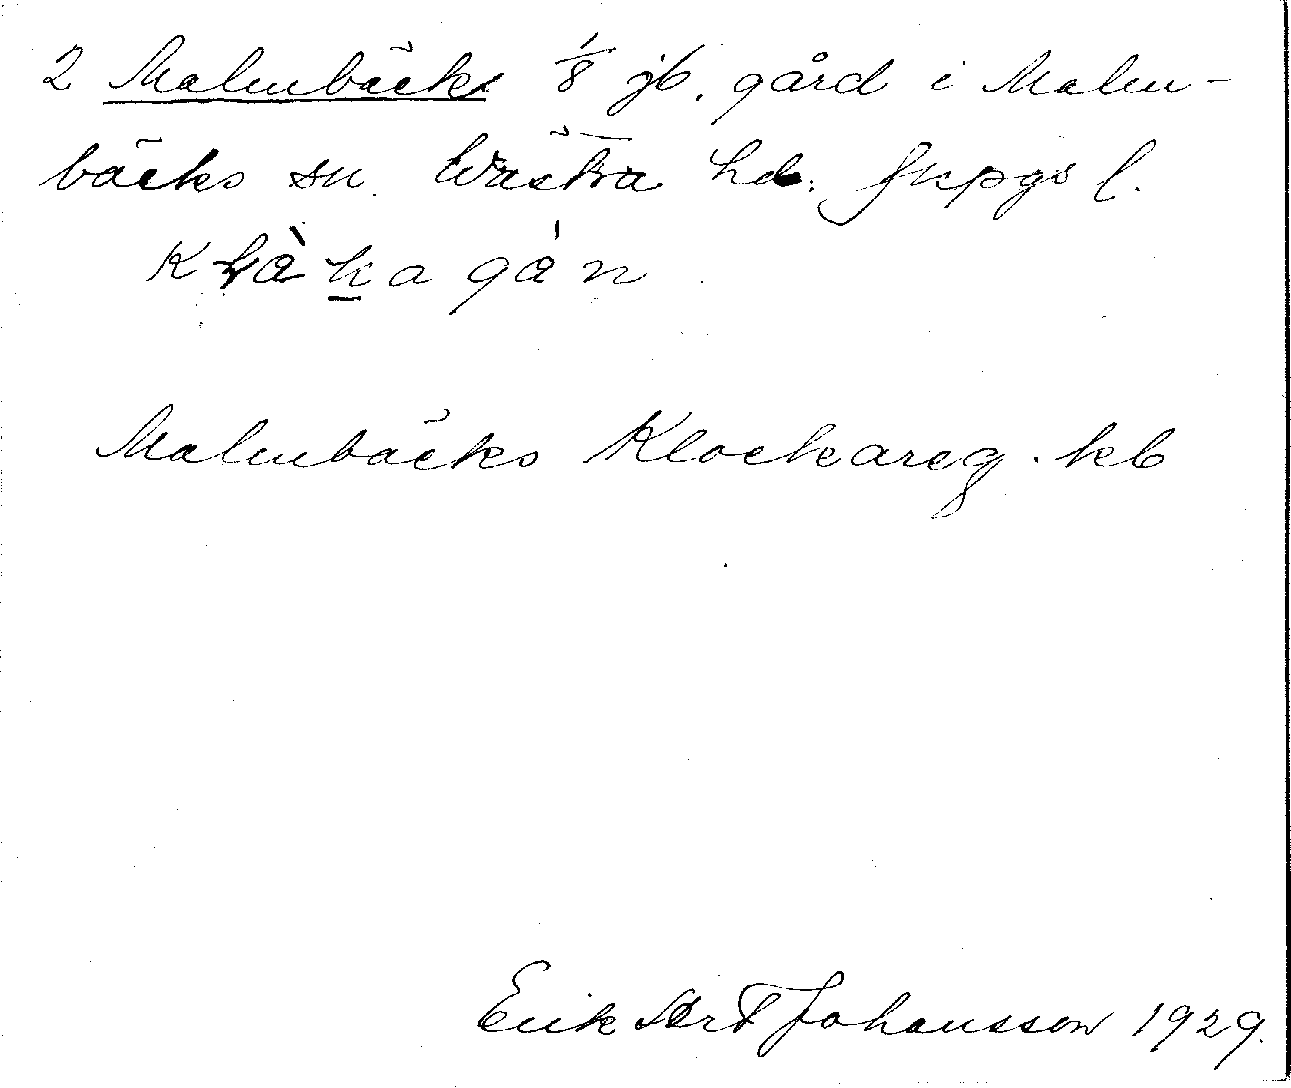 2 Malmbäck 1/8 jb. gård i Malm-
bäcks sn. Västra hd. Jkpgs l.
Malmbäcks Klockareg. kb
Erik Art Johansson 1929.